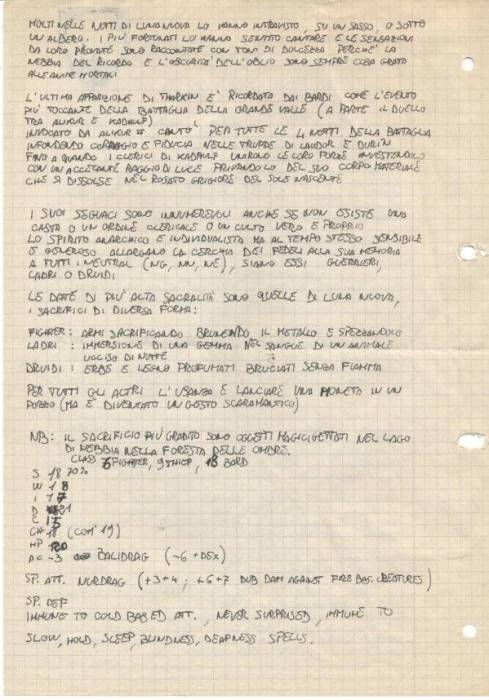 MOLTI NELLE NOTTI DI LUNA NUOVA LO HANNO INTRAVISTO, SU UN SASSO, O SOTTO
UN ALBERO. I PIU' FORTUNATI LO HANNO SENTITO CANTARE E LE SENSAZIONI
DA LORO PROVATE SONO RACCONTATE CON TONI DI DOLCEZZA PERCHE' LA
NEBBIA DEL RICORDO E L'OSCURITA' DELL'OBLIO SONO SEMPRE COSA GRATA
ALLE ANIME MORTALI
L'ULTIMA APPARIZIONE DI THARKIN E' RICORDATA DAI BARDI COME L'EVENTO
PIU' TOCCANTE DELLA BATTAGLIA DELLA GRANDE VALLE (A PARTE IL DUELLO
TRA ALIKUR E KADHULF)
INVOCATO DA ALIKUR CANTO' PER TUTTE LE 4 NOTTI DELLA BATTAGLIA
INFONDENDO CORAGGIO E FIDUCIA NELLE TRUPPE DI LAUDOR E DURIN
FINO A QUANDO I CLERICI DI KADHULF UNIRONO LE LORO FORZE INVESTENDOLO
CON UN ACCECANTE RAGGIO DI LUCE PRIVANDOLO DEL SUO CORPO MATERIALE
CHE SI DISSOLSE NEL ROSATO GRIGIORE DEL SOLE NASCENTE
I SUOI SEGUACI SONO INNUMEREVOLI ANCHE SE NON ESISTE UNA
CASTA O UN ORDINE CLERICALE O UN CULTO VERO E PROPRIO
LO SPIRITO ANARCHICO E INDIVIDUALISTA MA AL TEMPO STESSO SENSIBILE
E GENEROSO ALLARGANO LA CERCHIA DEI FEDELI ALLA SUA MEMORIA
A TUTTI I NEUTRAL (NG, NN, NE), SIANO ESSI GUERRIERI,
LADRI O DRUIDI
LE DATE DI PIU' ALTA SACRALITA' SONO QUELLE DI LUNA NUOVA,
I SACRIFICI DI DIVERSA FORMA:
FIGHTER: ARMI SACRIFICANDO BRUNENDO IL METALLO E SPEZZANDOLO
LADRI : IMMERSIONE DI UNA GEMMA NEL SANGUE DI UN ANIMALE
UCCISO DI NOTTE
DRUIDI : ERBE E LEGNO PROFUMATI BRUCIATI SENZA FIAMMA
PER TUTTI GLI ALTRI L'USANZA E LANCIARE UNA MONETA IN UN
POZZO (MA E' DIVENTATO UN GESTO SCARAMANTICO)
NB: IL SACRIFICIO PIU' GRADITO SONO OGGETTI MAGICI GETTATI NEL LAGO
DI NEBBIA NELLA FORESTA DELLE OMBRE.
CLASS FIGHTER, 9 THIEF, 18 BARD
S 18 70%
W 18
I 17
D 21
C 15
CH 18 (COM 19)
HP 120
AC -3 BALIDRAG (-6 +DEX)
SP. ATT. NURDRAG (+3 +4 ; +6 +7 DUB DAM AGAINST FIRE BAS. CREATURES)
SP. DEF
IMMUNE TO COLD BASED ATT., NEVER SURPRISED, IMMUNE TO
SLOW, HOLD, SLEEP, BLINDNESS, DEAFNESS SPELLS.